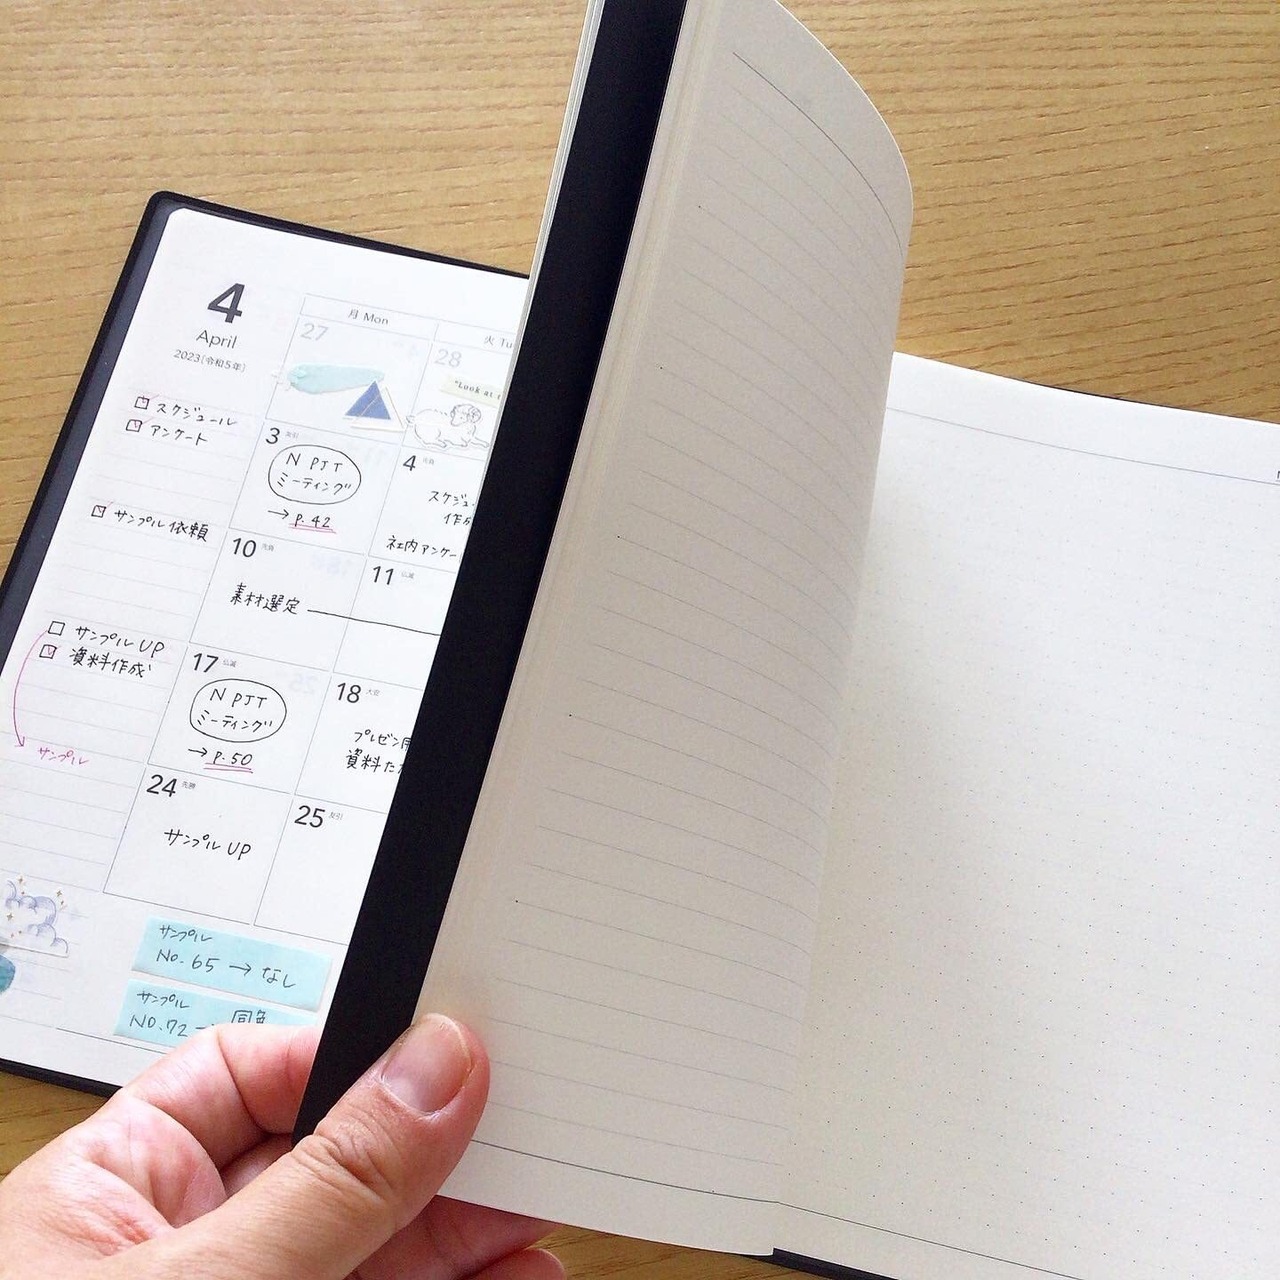 4
April
2023(令和5年)
月 Mon
火 Tu
27
28
"Look at
スケジュール
アンケート
3 友引
N PJT
ミーティング
→ p.42
4 先負
スケジュ
作成
社内アンケー
サンプル依頼
10 先負
素材選定
11 仏滅
サンプル UP
資料作成
サンプル
17 仏滅
N PJT
ミーティング
→ p.50
18 大安
プレゼン用
資料
24 先勝
サンプル UP
25 友引
サンプル
No. 65 → なし
サンプル
NO.72 → 同色